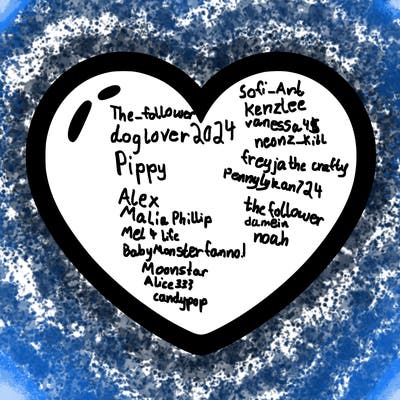 The_follower
doglover2024
Pippy
Alex
Malia Phillip
Mel & life
BabyMonsterfanno.1
Moonstar
Alice333
candypop
Sofi_Art
Kenzlee
vanessa4$
neonz_kitt
freyja the crafty
Pennylykan724
the follower
damein
noah